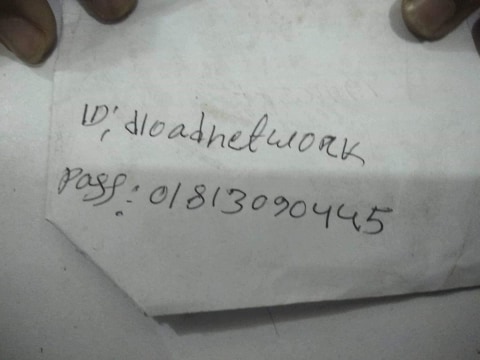 ID; dloadnetwork
pass: 01813090445